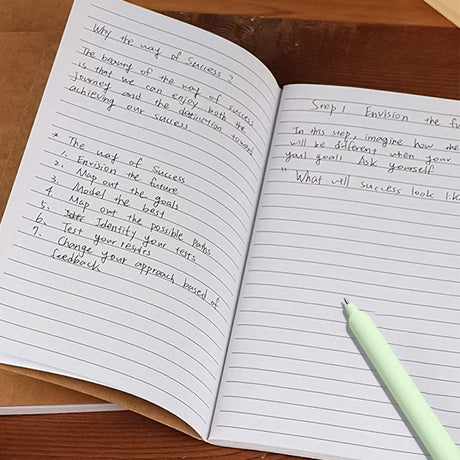 Why the way of Success?
The beauty of the way of success
is that we can enjoy both the
journey and the destination toward
achieving our success
* The way of Success
1. Envision the future
2. Map out the goals
3. Model the best
4. Map out the possible paths
5. Identify your tests
6. Test your results
7. Change your approach based of
feedback
Step 1 Envision the fu
In this step, imagine how the
will be different when your
goals Ask yourself
"What will success look lik